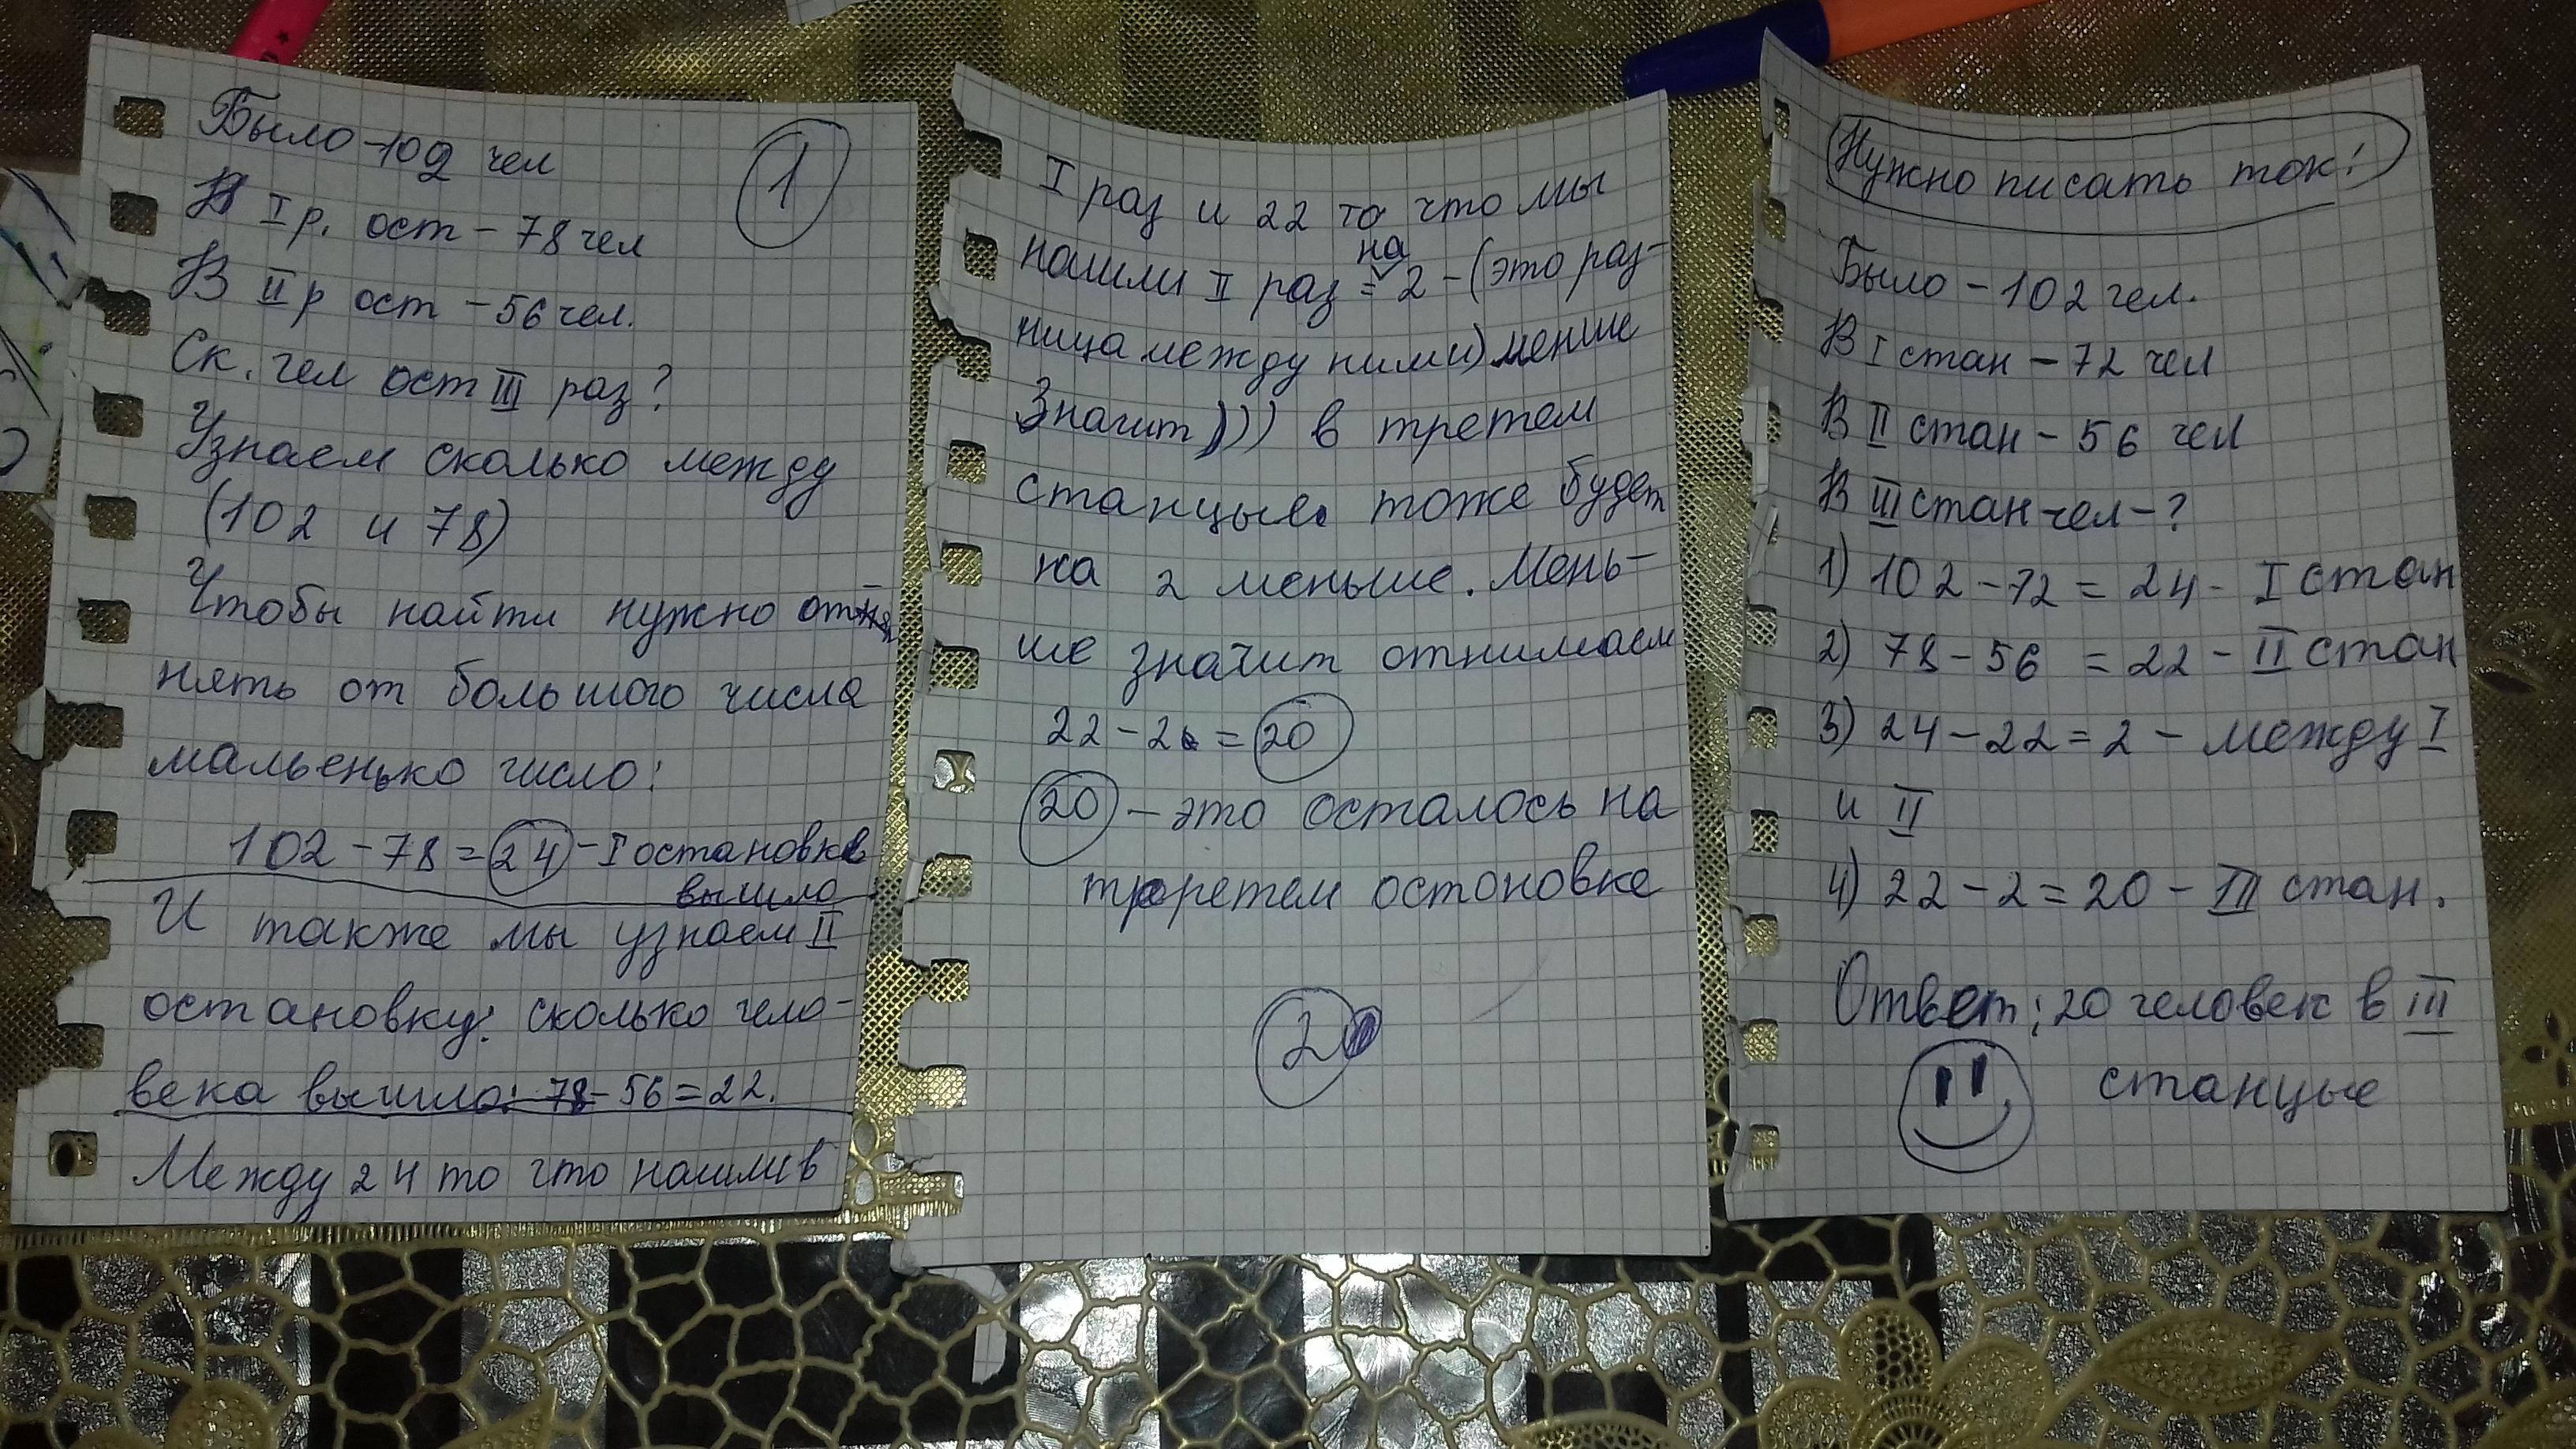 1
Было -102 чел
В I р. ост - 78 чел
В II р ост - 56 чел.
Ск. чел ост III раз?
Узнаем сколько между
(102 и 78)
Чтобы найти нужно от
нять от большого числа
мальенько число:
102 - 78 = 24 - I остановке
вышло
И также мы узнаем II
остановку: сколько чело-
века вышло: 78 - 56 = 22.
Между 24 то что нашли в
I раз и 22 то что мы
нашли II раз = на 2 - (это раз-
ница между ними) менше
Значит))) в третем
станцые тоже будет
на 2 меньше. Мень-
ше значит отнимаем
22 - 2 = 20
20 - это осталось на
третем остоновке
2
Нужно писать так!
Было - 102 чел.
В I стан - 72 чел
В II стан - 56 чел
В III стан чел - ?
1) 102 - 72 = 24 - I стан
2) 78 - 56 = 22 - II стан
3) 24 - 22 = 2 - между I
и II
4) 22 - 2 = 20 - III стан.
Ответ: 20 человек в III
станцые